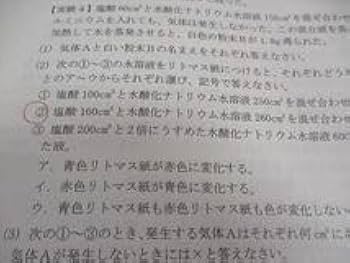 【実験4】塩酸60cm³と水酸化ナトリウム水溶液150cm³を混ぜ合わせ
ルミニウムを入れても、気体は発生しなかった。この混合液を蒸
加熱して水を蒸発させると、白色の粉末Bが1.8g得られた。
(1) 気体Aと白い粉末Bの名まえをそれぞれ答えなさい。
(2) 次の①～③の水溶液をリトマス紙につけると、それぞれどう
とのア～ウからそれぞれ選び、記号で答えなさい。
① 塩酸100cm³と水酸化ナトリウム水溶液250cm³を混ぜ合わせ
② 塩酸160cm³と水酸化ナトリウム水溶液260cm³を混ぜ合わせ
③ 塩酸200cm³と2倍にうすめた水酸化ナトリウム水溶液60
た液。
ア．青色リトマス紙が赤色に変化する。
イ．赤色リトマス紙が青色に変化する。
ウ．青色リトマス紙も赤色リトマス紙も色が変化しない
(3) 次の①～③のとき、発生する気体Aはそれぞれ何cm³に
気体Aが発生しないときには×と答えなさい。